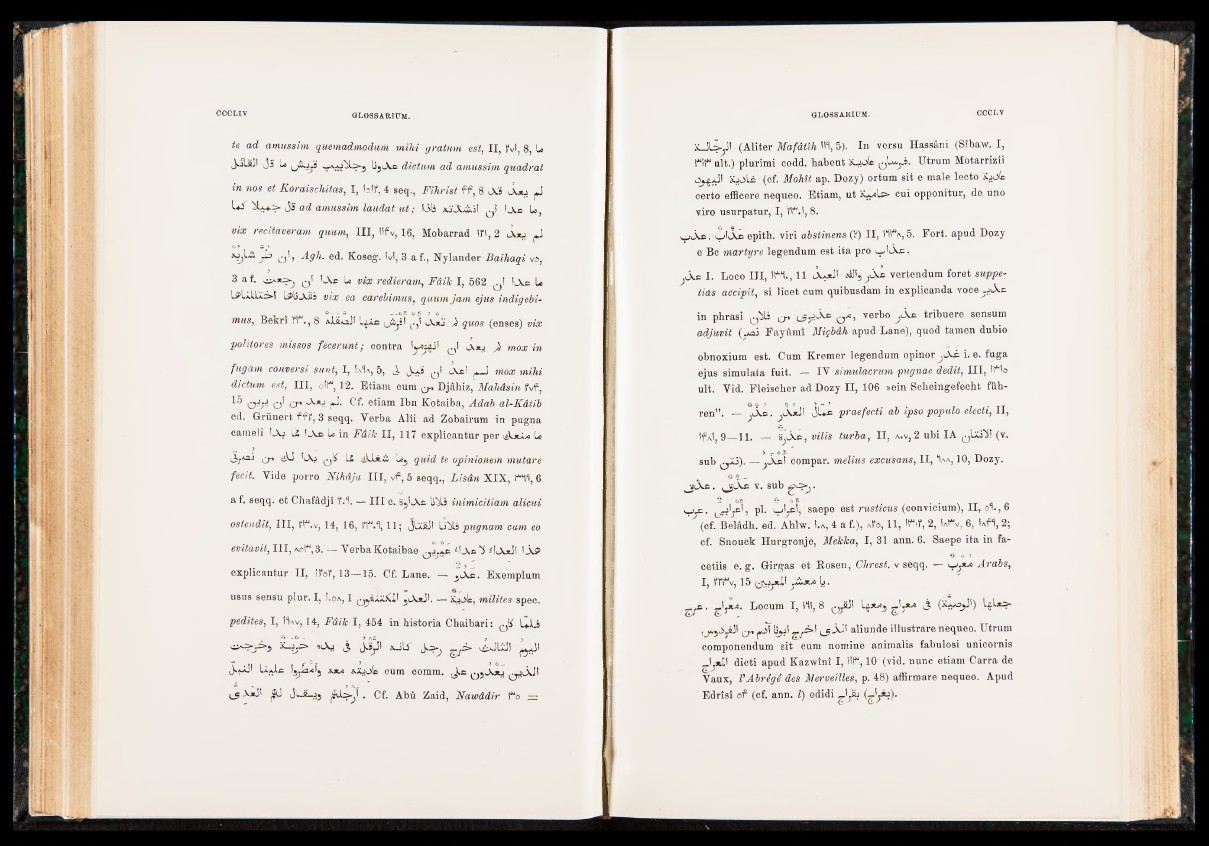 CCCLIV GLOSSARIUM.
te ad amussim quemadmodum mihi gratum est, II, ٢٧١, 8, ما
عدونا وجلابيب قريش ما قال القائل dictum ad amussim quadrat
in nos et Koraischitas, I, 4 seq., Fihrist ٤٤, 8 لم يعد قد
ad amussim laudat ut; ما عدا ان انشدته قلنا
vix recitaveram quum, III, ١١٤٧, 16, Mobarrad ١٢١, 2 لم يعد
ان, Agh. ed. Koseg. ١٧١, 3 a f., Nylander Baihaqi ٧٥,
3 a f. ما عدا ان رجعت vix redieram, Fâïk I, 562 ما عدا ان
vix ea carebimus, quum jam ejus indigebi-
mus, Bekrî ٢٣٠, 8 quos (enses) vix
politores missos fecerunt; contra لم يعد ان انهزموا mox in
fugam conversi sunt, I, 5, لم اعد ان قيل لى mox mihi
dictum est, III, ٥١٣, 12. Etiam cum من Djâhiz, Mahâsin ٢٧٤,
15 لم يعد من ان يرى. Cf. etiam Ibn Kotaiba, Adab al-Kâtib
ed. Grünert ٤٤٢, 3 seqq. Verba Alii ad Zobairum in pugna
cameli ما عدا مما بدا in Fâïk II, 117 explicantur per ما منعك
وما شغلك مما كان بدا لك من نصرتى quid te opinionem mutare
fecit. Vide porro Nihâja III, ٧٤, 5 seqq., Lisân XIX, ٢٦٩, 6
a f. seqq. et Chafâdjî ٢٠٩. — III c. عداوة فلانا inimicitiam alicui
ostendit, III, ٢٣٠٧, 14, 16, ٢٣٠٩, 11; فلانا القتال pugnam cum eo
evitavit, III, ٨٥٣, 3. — Verba Kotaibae هذا العداء لا عداء غيرى
explicantur II, ١٢٥٢, 13—15. Cf. Lane. — عدو. Exemplum
usus sensu plur. I, ١٠٥٨, 1 العدو المكتنفون. — عدية, milites spec.
pedites, I, ١٩٨٧, 14, Fâïk I, 454 in historia Chaibari: فلما كان
اليوم الثالث خرج رجل كانه الرقل فى يده حربة وخرجت
عديته معه وامطروا علينا النبل cum comm. الذين يعدون على
ارجلهم وقيل لهم العدى. Cf. Abû Zaid, Nawâdir ٣٥ =
GLOSSARIUM. CCCLV
الرجالة (Aliter Mafâtîh ١١٩, 5). In versu Hassâni (Sîbaw. I,
٣٦٣ ult.) plurimi codd. habent فرسان عادية. Utrum Motarrizii
غادية اليهود (cf. Mohît ap. Dozy) ortum sit e male lecto عادية
certo efficere nequeo. Etiam, ut حامية cui opponitur, de uno
viro usurpatur, I, ٢٣٠١, 8.
عذب. عذاب epith. viri abstinens (?) II, ١٦٣٨, 5. Fort. apud Dozy
e Bc martyre legendum est ita pro عذاب.
عذر I. Loco III, ١٣٩٠, 11 عذر والله العبد vertendum foret suppe-
tias accipit, si licet cum quibusdam in explicanda voce عذير
in phrasi من عذيرى من فلان, verbo عذر tribuere sensum
adjuvit (نصر Fayûmî Miçbâh apud Lane), quod tamen dubio
obnoxium est. Cum Kremer legendum opinor غدر i. e. fuga
ejus simulata fuit. — IV simulacrum pugnae dedit, III,
ult. Vid. Fleischer ad Dozy II, 106 »ein Scheingefecht füh-
ren”. — عذر. عمال العذر praefecti ab ipso populo electi, II,
١٤٨١, 9—11. — عذرة, vilis turba, II, ٨٠٧, 2 ubi IA الانتان (v.
sub نتن). — اعذر compar. melius excusans, II, ٦٨٨, 10, Dozy.
عذق. عذيق v. sub رجب.
عرب. اعرابى, pl. اعراب, saepe est rusticus (convicium), II, ٥٩٠, 6
(cf. Belâdh. ed. Ahlw. ١٠٨, 4 a f.), ٨٢٥, 11, ١١٣٠٢, 2, ١٨٣٧, 6, ١٨٤٩, 2;
cf. Snouck Hurgronje, Mekka, I, 31 ann. 6. Saepe ita in fa-
cetiis e. g. Girgas et Rosen, Chrest. v seqq. — معرب Arabs,
I, ٢٢٣٧, 15 يا معشر المعربين.
عرج. معراج. Locum I, ١٦١, 8
aliunde illustrare nequeo. Utrum
componendum sit cum nomine animalis fabulosi unicornis
المعراج dicti apud Kazwînî I, ١١٣, 10 (vid. nunc etiam Carra de
Vaux, l'Abrégé des Merveilles, p. 48) affirmare nequeo. Apud
Edrîsî ٥٤ (cf. ann. l) edidi بقراج (بغراج).